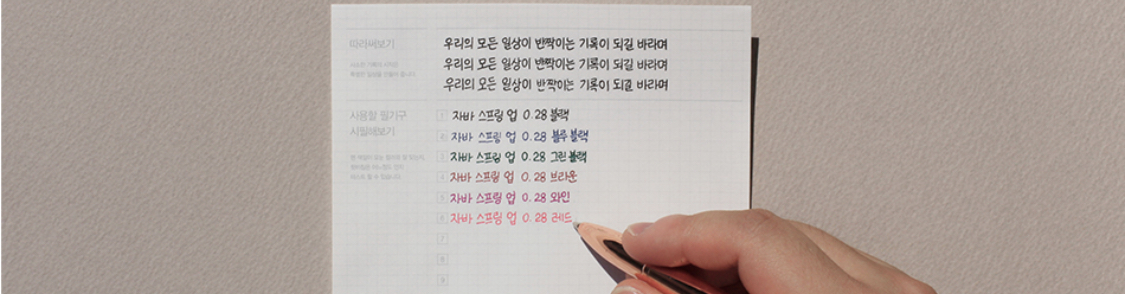 따라써보기
우리의 모든 일상이 반짝이는 기록이 되길 바라며
우리의 모든 일상이 반짝이는 기록이 되길 바라며
우리의 모든 일상이 반짝이는 기록이 되길 바라며
사용할 필기구
시필해보기
1 자바 스프링 업 0.28 블랙
2 자바 스프링 업 0.28 블루블랙
3 자바 스프링 업 0.28 그린블랙
4 자바 스프링 업 0.28 브라운
5 자바 스프링 업 0.28 와인
6 자바 스프링 업 0.28 레드
7
8
9